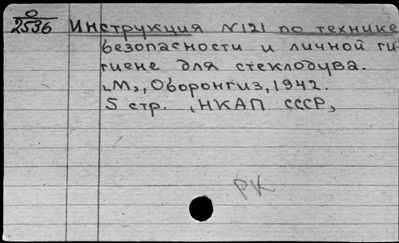 О
2536 Инструкция №121 по технике
безопасности и личной ги-
гиене для стеклодува.
„М„, Оборонгиз, 1942.
5 стр. , НКАП СССР,
РК